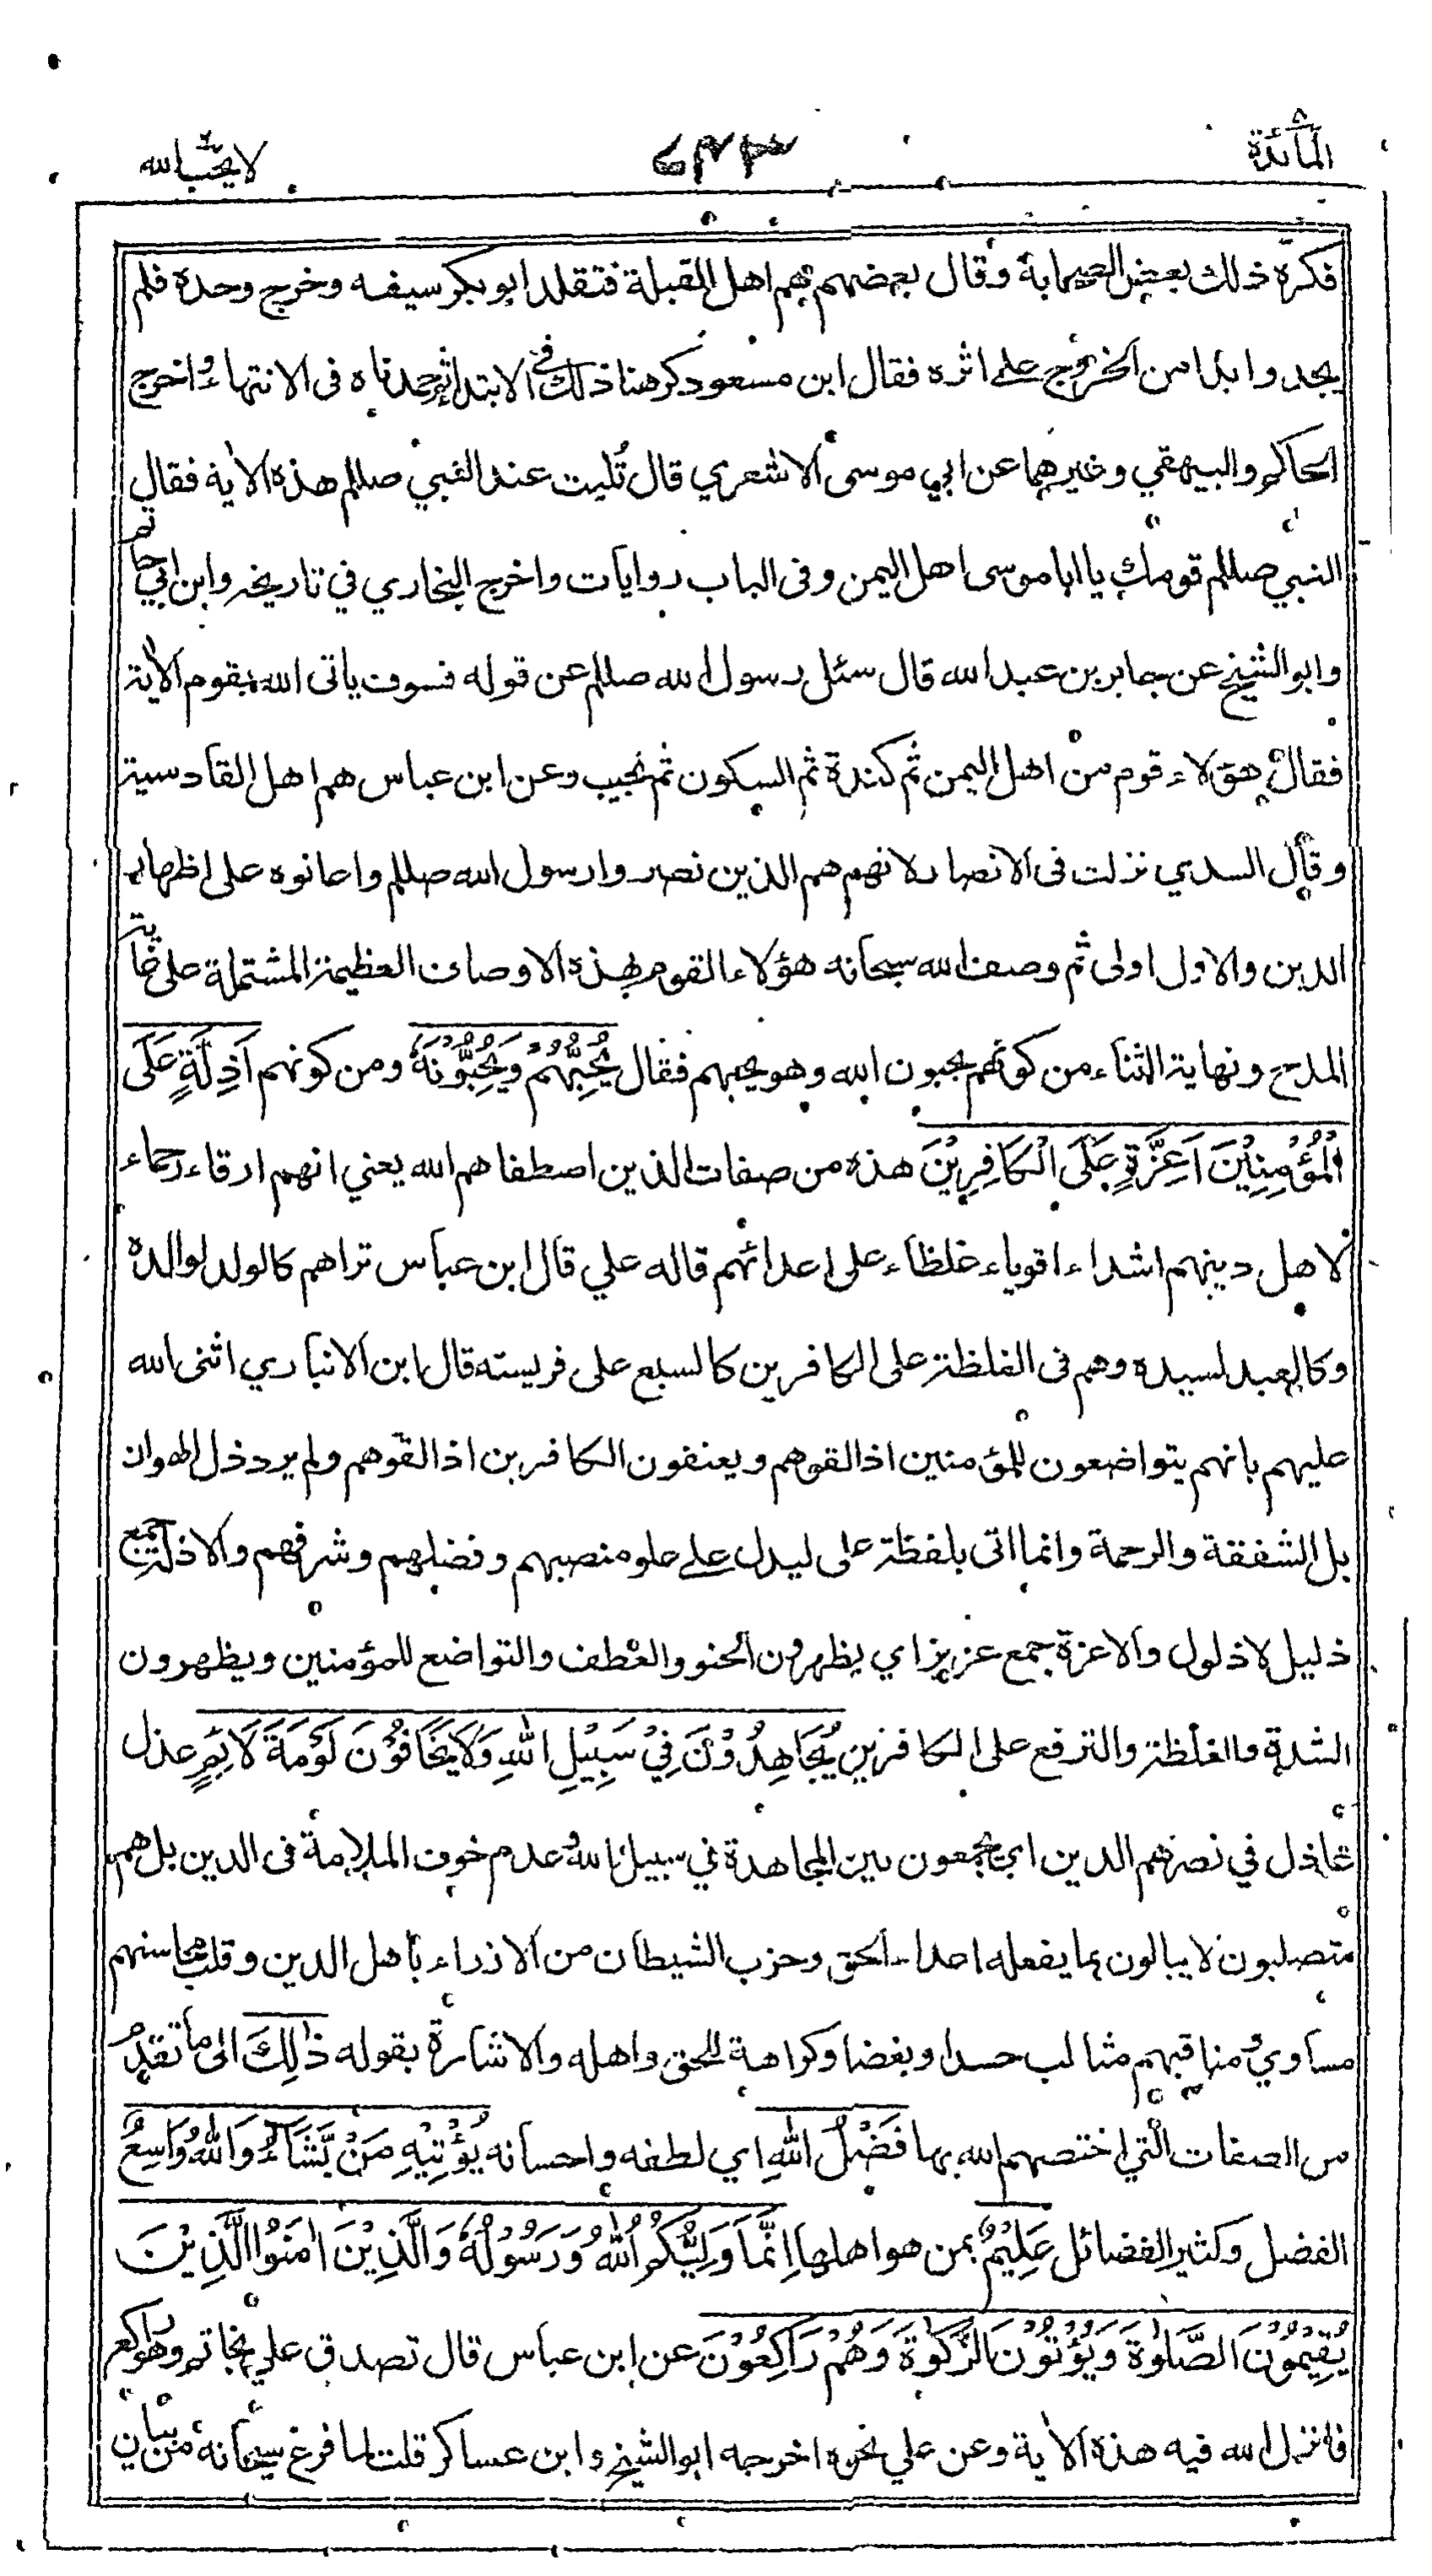 المائدة
لا يحب الله
فكره ذلك بعض الصحابة وقال بعضهم هم اهل القبلة فتقلد ابو بكر سيفه وخرج وحده فلم
يجدوا بدا من الخروج على اثره فقال ابن مسعود كرهنا ذلك في الابتداء ثم حمدناه فى الانتهاء واخرج
الحاكم والبيهقي وغيرهما عن ابي موسى الاشعري قال تُليت عند النبي صللم هذه الاٰية فقال
النبي صللم قومك يا ابا موسى اهل اليمن وفى الباب روايات واخرج البخاري في تاريخه وابن ابي حاتم
وابو الشيخ عن جابر بن عبد الله قال سئل رسول الله صللم عن قوله فسوف ياتى الله بقوم الاٰية
فقال هؤلاء قوم من اهل اليمن ثم كندة ثم السكون ثم تجيب وعن ابن عباس هم اهل القادسية
وقال السدي نزلت فى الانصار لانهم هم الذين نصروا رسول الله صللم واعانوه على اظهار
الدين والاول اولى ثم وصف الله سبحانه هؤلاء القوم بهذه الاوصاف العظيمة المشتملة على غاية
المدح ونهاية الثناء من كونهم يحبون الله وهو يحبهم فقال يُحِبُّهُمْ وَيُحِبُّوْنَهٗ ومن كونهم اَذِلَّةٍ عَلَى
الْمُؤْمِنِيْنَ اَعِزَّةٍ عَلَى الْكَافِرِيْنَ هذه من صفات الذين اصطفاهم الله يعني انهم ارقاء رحماء
لاهل دينهم اشداء اقوياء غلظاء على اعدائهم قاله علي قال ابن عباس تراهم كالولد لوالده
وكالعبد لسيده وهم فى الغلظة على الكافرين كالسبع على فريسته قال ابن الانباري اثنى الله
عليهم بانهم يتواضعون للمؤمنين اذا لقوهم ويعنفون الكافرين اذا لقوهم ولم يرد ذل الهوان
بل الشفقة والرحمة وانما اتى بلفظة على ليدل على علو منصبهم وفضلهم وشرفهم والاذلة جمع
ذليل لا ذلول والاعزة جمع عزيز اي يظهرون الحنو والعطف والتواضع للمؤمنين ويظهرون
الشدة والغلظة والترفع على الكافرين يُجَاهِدُوْنَ فِيْ سَبِيْلِ اللهِ وَلَا يَخَافُوْنَ لَوْمَةَ لَائِمٍ عذل
عاذل في نصرهم الدين اي يجمعون بين المجاهدة في سبيل الله وعدم خوف الملامة فى الدين بل هم
متصلبون لا يبالون بما يفعله اعداء الحق وحزب الشيطان من الازراء باهل الدين وقلب محاسنهم
مساوي ومناقبهم مثالب حسدا وبغضا وكراهة للحق واهله والاشارة بقوله ذٰلِكَ الى ما تقدم
من الصفات التي اختصهم الله بها فَضْلُ اللهِ اي لطفه واحسانه يُؤْتِيْهِ مَنْ يَّشَآءُ وَاللهُ وَاسِعٌ
الفضل وكثير الفضائل عَلِيْمٌ بمن هو اهلها اِنَّمَا وَلِيُّكُمُ اللهُ وَرَسُوْلُهٗ وَالَّذِيْنَ اٰمَنُوا الَّذِيْنَ
يُقِيْمُوْنَ الصَّلٰوةَ وَيُؤْتُوْنَ الزَّكٰوةَ وَهُمْ رَاكِعُوْنَ عن ابن عباس قال تصدق علي بخاتم وهو راكع
فانزل الله فيه هذه الاٰية وعن علي نحوه اخرجه ابو الشيخ وابن عساكر قلت لما فرغ سبحانه من بيان